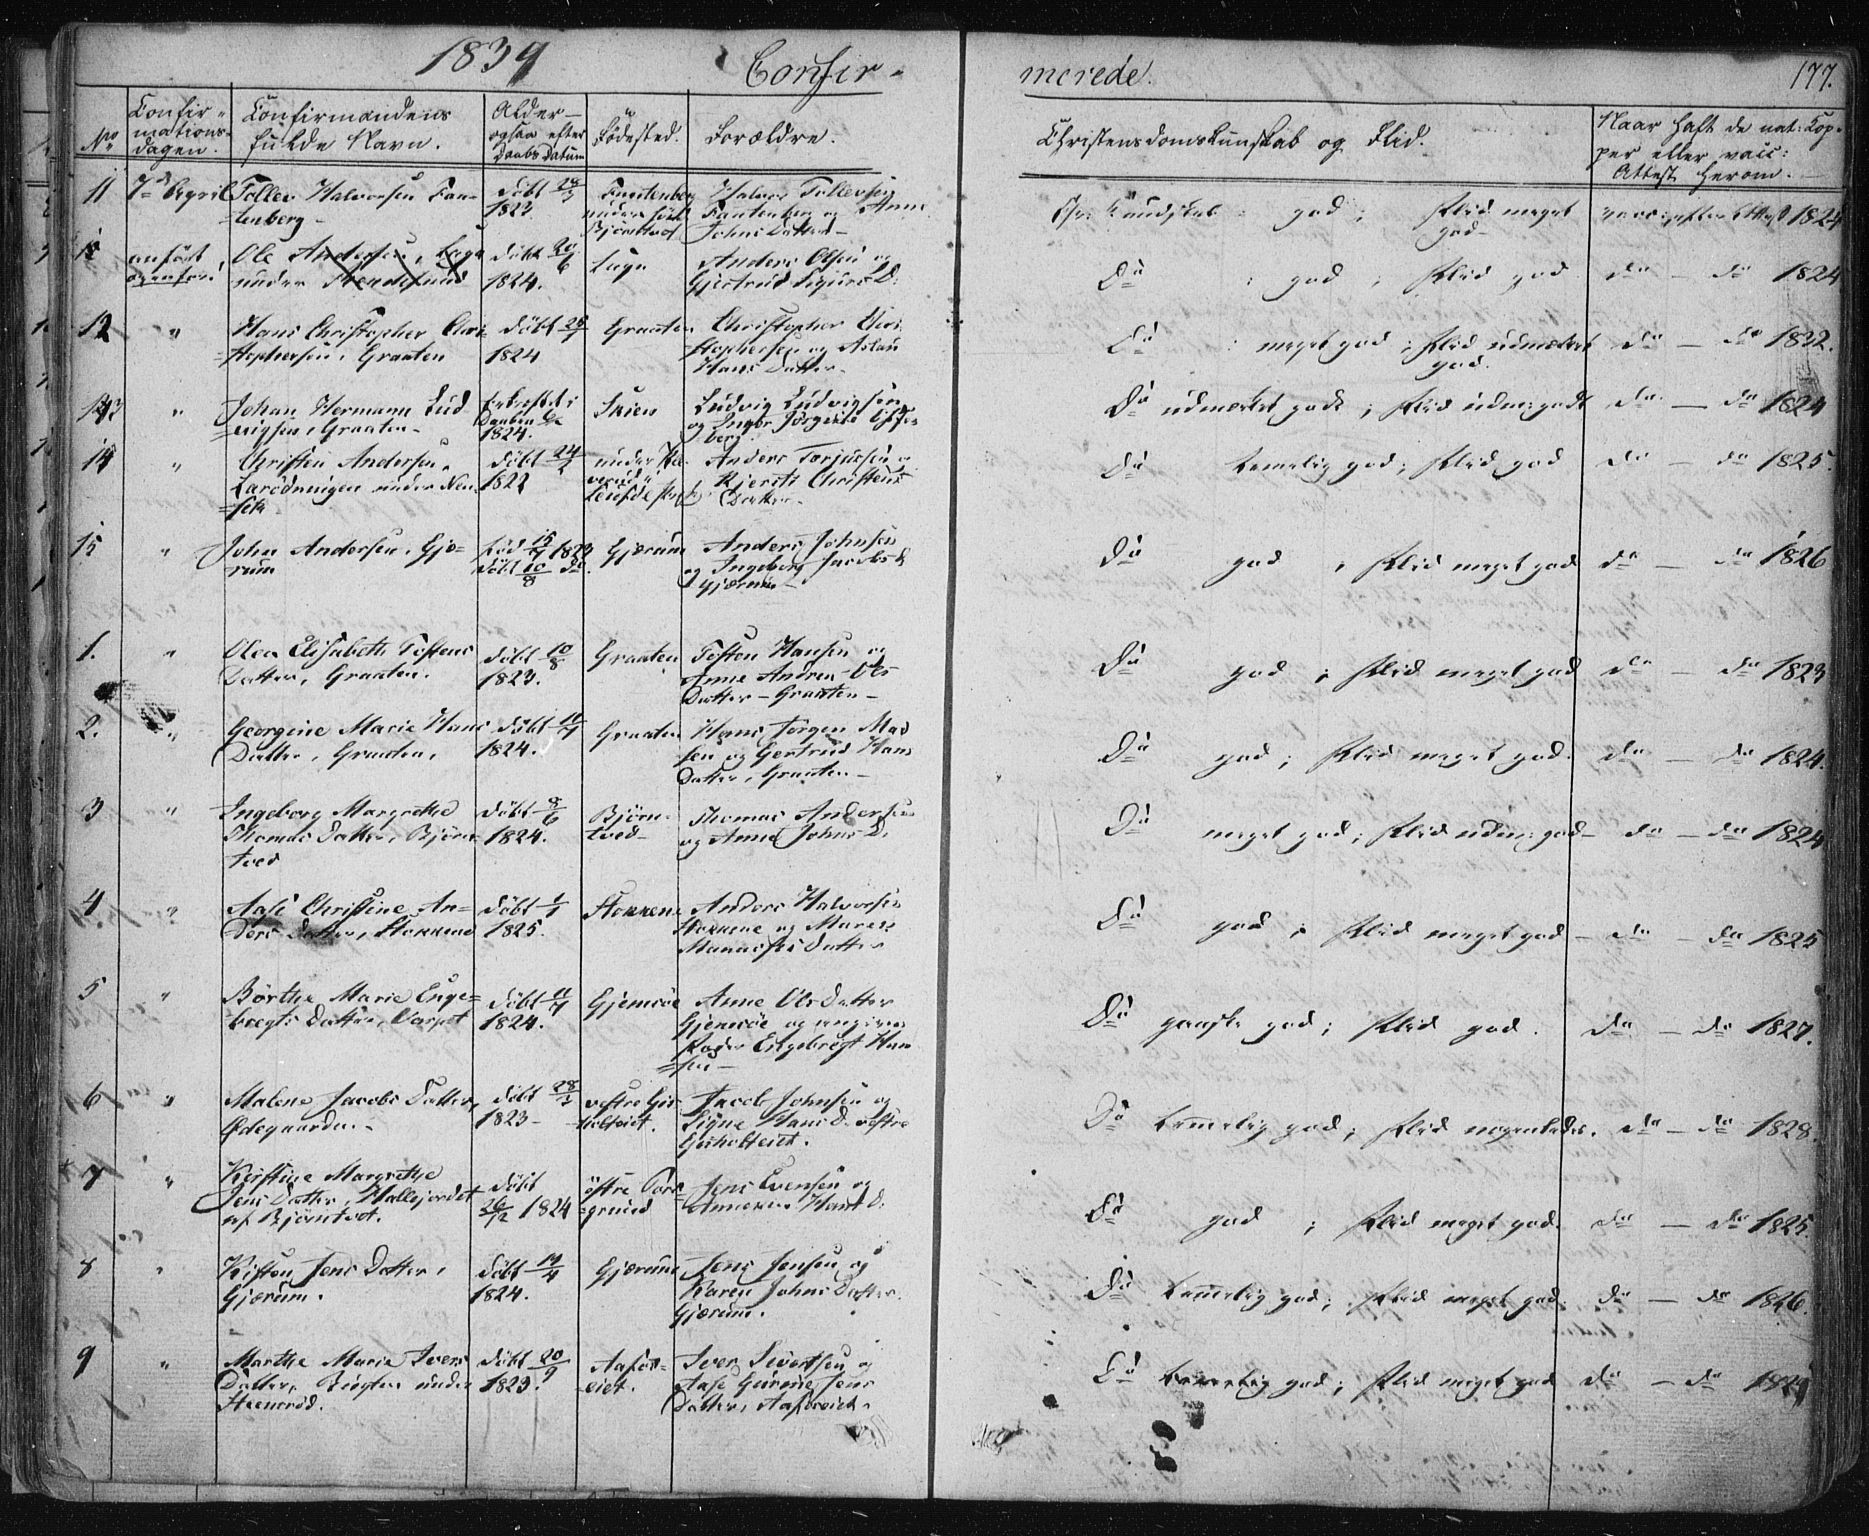 1839
Confir-
merede.
177.
No
Confir-
mations-
dagen.
Confirmandens
fulde Navn.
Alder
ogsaa efter
Daabs Datum
Födested.
Forældre.
Christendomskundskab og Flid.
Naar haft de nat: Kop-
per eller vacc:
Attest herom.
11 7de April Tollev Halvorsen Fan-
tenberg döbt 28/3 1823 Fantenberg
under
Björntvet
Halvor Tollevsen
Fantenberg og Anne
Johns Datter
Chr: Kundskab god; Flid meget
god
vacc: efter Attest 1824
anfört
ovenfor!
Ole Andersen,
under
döbt 20/6
1824.
Anders Olsen og
Gjertrud Sigurs D.
Do god; Flid god do — do 1824
12 " Hans Christopher Chri-
stophersen, Graaten
döbt 25/7
1824
Graaten
Christopher Chri-
stophersen og Aslau
Hans Datter
Do meget god; Flid udmærket
god.
do — do 1832.
13 " Johan Hermann Lud
vigsen, Graaten
Daaben
1824.
Skien
Ludvig Ludvigsen
og Ingbr Jörgine
berg
Do udmærket godt; Flid udm: godt do — do 1824
14 " Christen Andersen,
under Nen-
set
döbt 24/2
1822
under
Anders Torjussen og
Kjersti Christens
Datter
Do temelig god; Flid god do — do 1825.
15 " John Andersen, Gjæ-
rum
föd 15/7 1823
döbt 10/8 do.
Gjærum
Anders Johnsen
og Ingeborg Jacobs D
Gjærum
Do god, Flid meget god do — do 1826
1. " Olea Elisabeth Tostens
Datter, Graaten.
döbt 10/8
1823.
Graaten
Tosten Hansen og
Anne Andrea Ols
Datter - Graaten -
Do god; Flid meget god do — do 1823
2. " Georgine Marie Hans
Datter, Graaten,
döbt 11/7
1824.
Graaten
Hans Jörgen Mad
sen og Gertrud Hans
Datter, Graaten
Do god; Flid meget god. do — do 1824.
3 " Ingeborg Margrethe
Thomas Datter, Björn-
tved
döbt 8/6
1824.
Björn-
tved
Thomas Andersen
og Anne Johns D.
Do meget god; Flid udm: god do — do 1824
4. " Aase Christine An-
ders Datter, Stokkene
döbt 1/1
1825.
Stokkene
Anders Halvorsen
Stokkene og Maren
Datter
Do god; Flid meget god - do - do 1825
5 " Börthe Marie Enge-
bregts Datter,
döbt 11/7
1824.
Gjemsöe
Anne Ols Datter
Gjemsöe og angiven
Fader Engebregt Han
sen
Do ganske god; Flid god. do — do 1827.
6 " Malene Jacobs Datter,
Ödegaarden
döbt 28/
1823
vestre Gis-
holtveit.
Jacob Johnsen og
Signe Hans D. vestre
Gisholtveit.
Do temelig god; Flid nogenledes. do — do 1828.
* 7 " Kistine Margrethe
Jens Datter, Hallejordet
af Björntvet.
Döbt
26/12 1824
östre Pors-
grund
Jens Evensen og
Hans D.
Do god; Flid meget god. do — do 1825.
8 " Kisten Jens Datter,
Gjærum.
döbt 19/4
1824.
Gjærum
Jens Jensen og
Karen Johns Datter,
Gjærum.
Do temelig god; Flid meget god do — do 1826.
9 " Marthe Marie Ivers
Datter, under
Steensrød.
döbt 20/9
1823.
Aafos-
eiet.
Iver Sivertsen og
Aase Gurine Jens
Datter, Aafoseiet.
Do temelig god; Flid meget god do — do